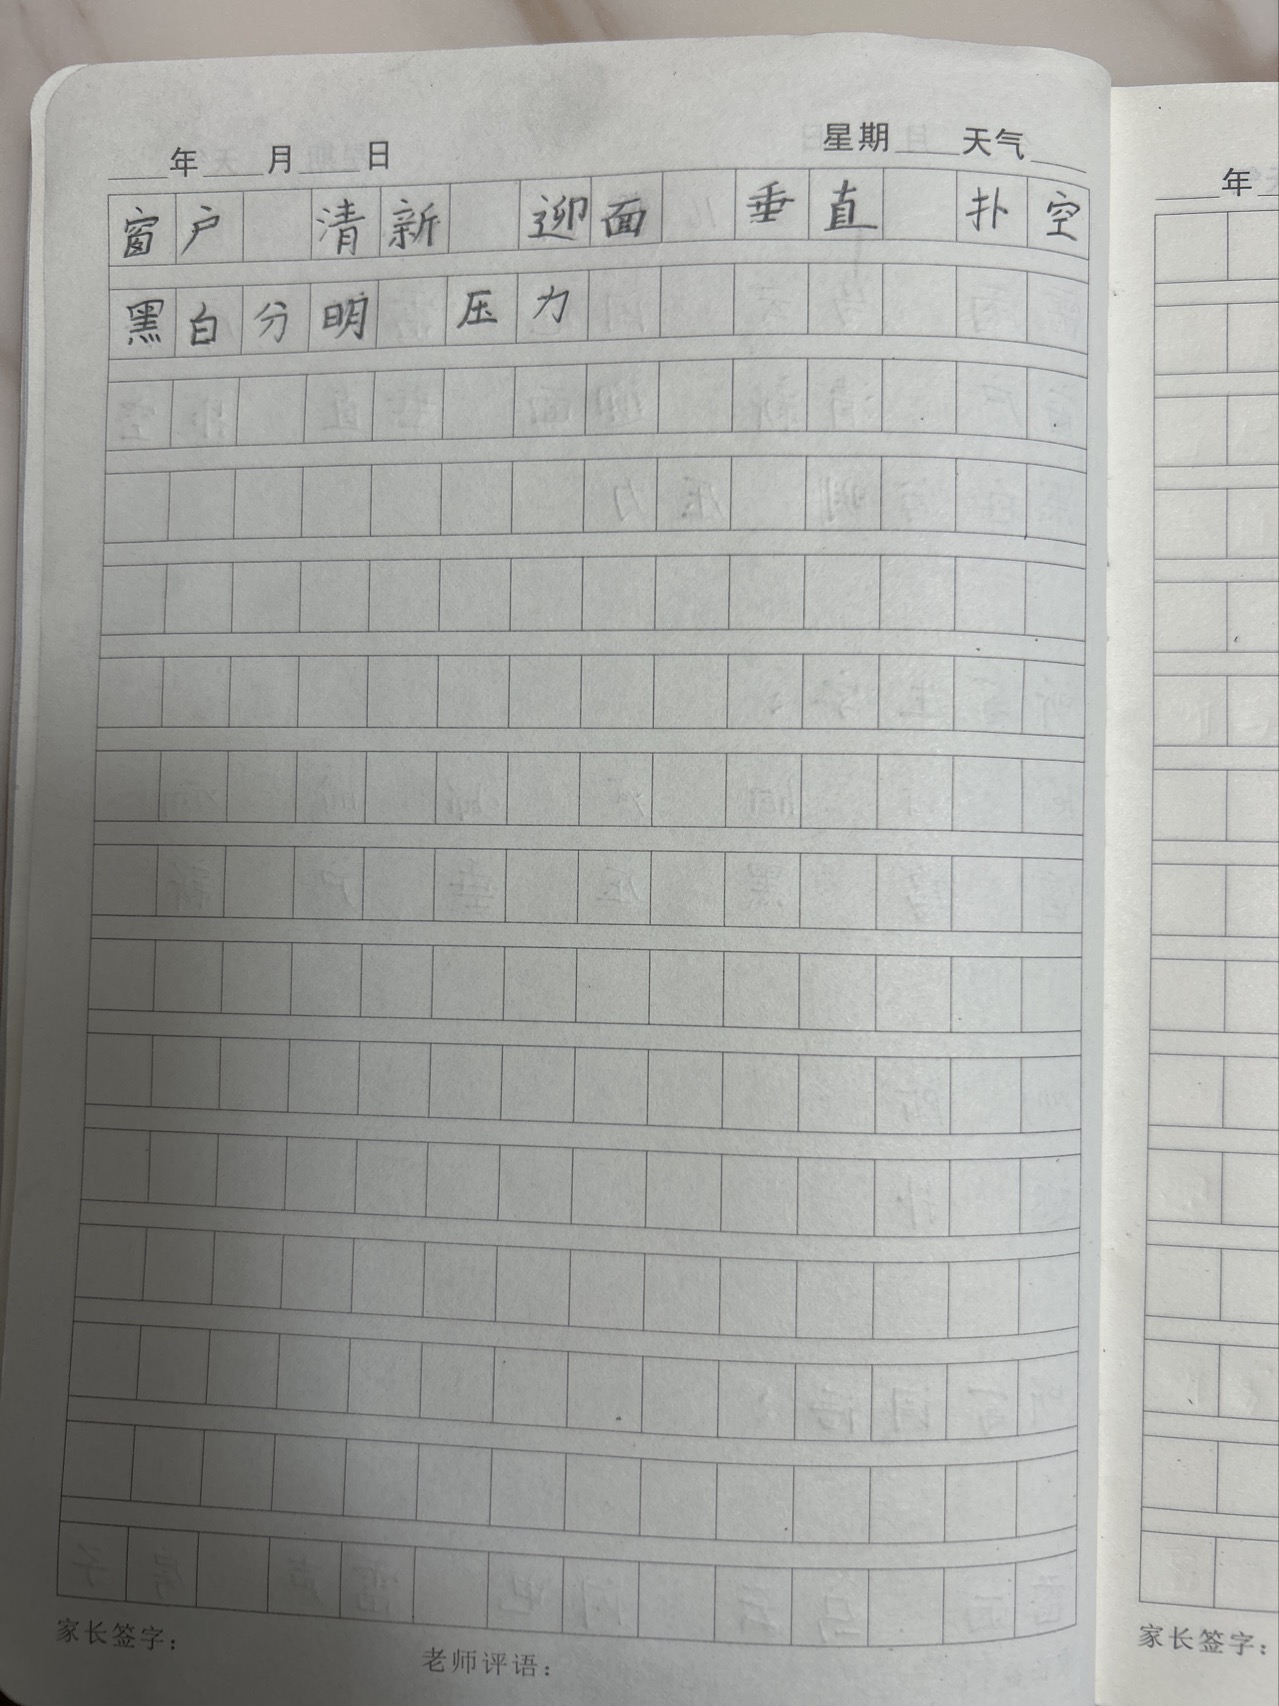 ____年____月____日 星期____天气____
窗户 清新 迎面 垂直 扑空
黑白分明 压力
家长签字：
老师评语：
____年
家长签字：